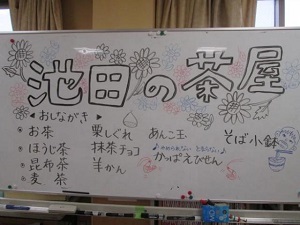 池田の茶屋
おしながき
お茶 栗しぐれ あんこ玉 そば小鉢
ほうじ茶 抹茶チョコ ♪やめられない とまらない♪
昆布茶 羊かん かっぱえびせん
麦茶